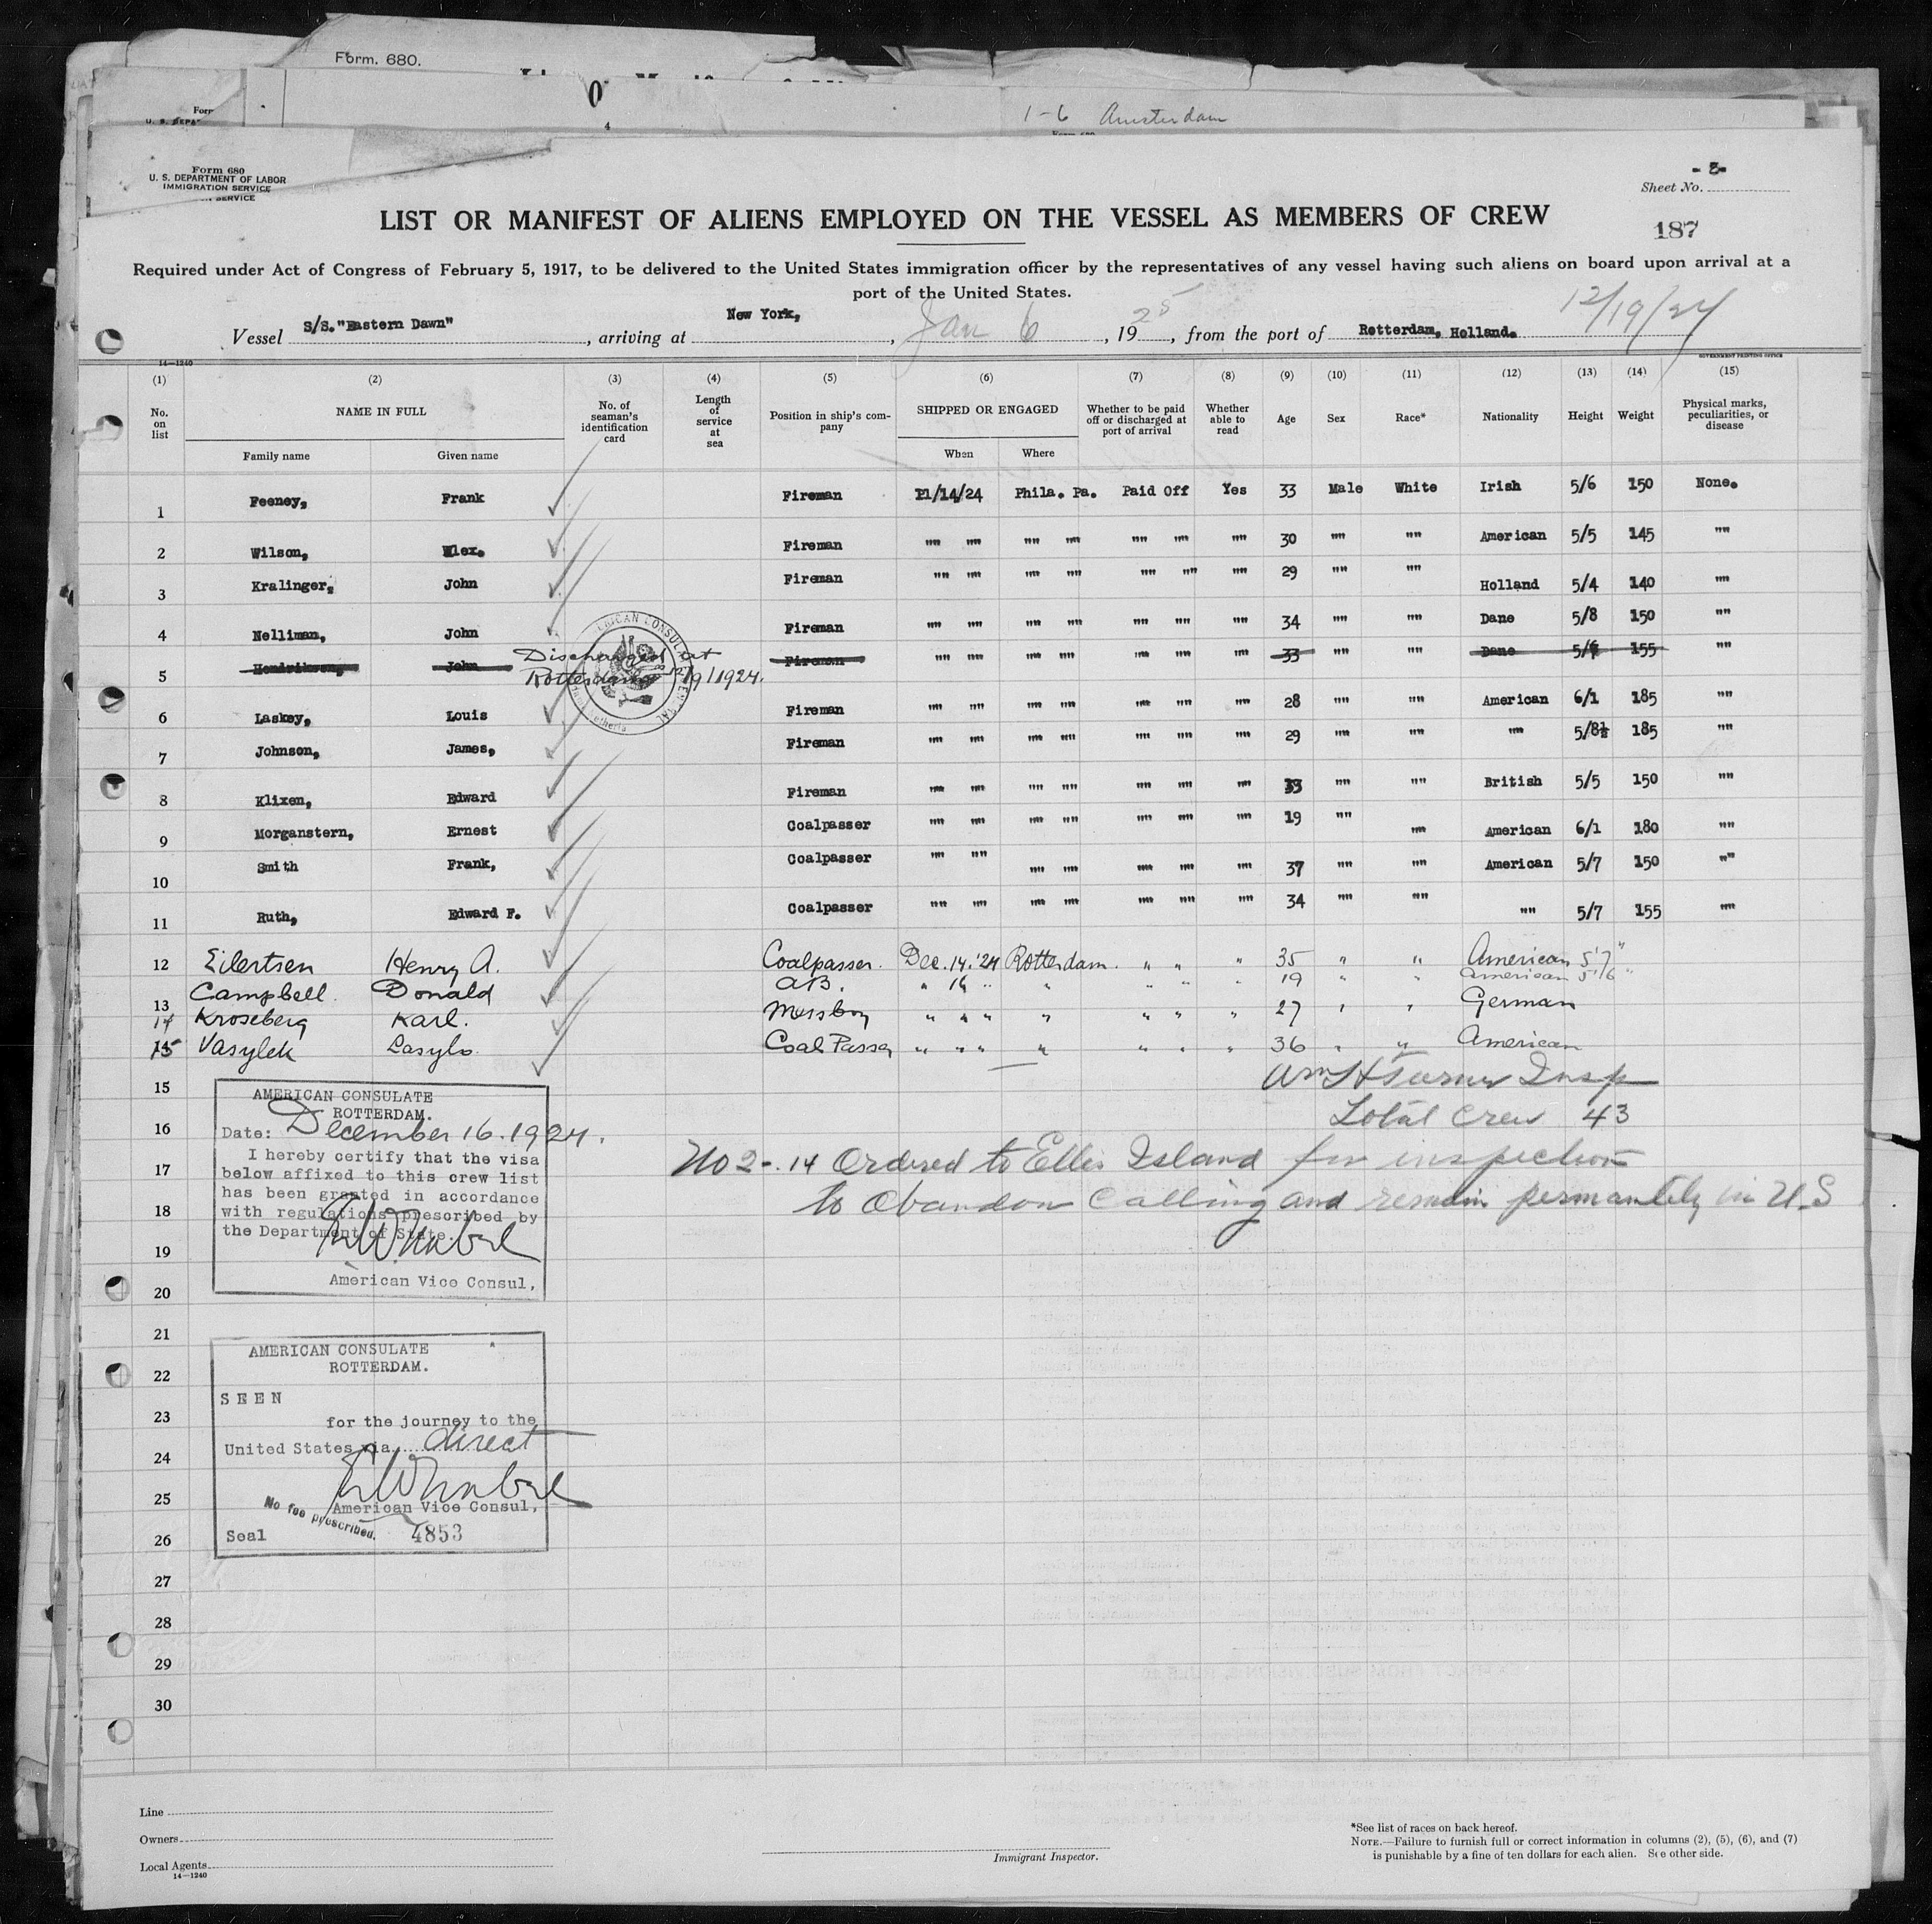 Form. 680.
1-6 Amsterdam
Form 680
U. S. DEPARTMENT OF LABOR
IMMIGRATION SERVICE
Sheet No.
187
LIST OR MANIFEST OF ALIENS EMPLOYED ON THE VESSEL AS MEMBERS OF CREW
Required under Act of Congress of February 5, 1917, to be delivered to the United States immigration officer by the representatives of any vessel having such aliens on board upon arrival at a
port of the United States.
12/19/24
Vessel S/S. "Eastern Dawn", arriving at New York, Jan 6, 1925, from the port of Rotterdam, Holland.
14—1240 GOVERNMENT PRINTING OFFICE
(1) (2) (3) (4) (5) (6) (7) (8) (9) (10) (11) (12) (13) (14) (15)
No. on list NAME IN FULL No. of seaman's identification card Length of service at sea Position in ship's company SHIPPED OR ENGAGED Whether to be paid off or discharged at port of arrival Whether able to read Age Sex Race* Nationality Height Weight Physical marks, peculiarities, or disease
Family name Given name When Where
1 Feeney, Frank Fireman 11/14/24 Phila. Pa. Paid Off Yes 33 Male White Irish 5/6 150 None.
2 Wilson, Alex. Fireman "" "" "" "" "" "" "" 30 "" "" American 5/5 145 ""
3 Kralinger, John Fireman "" "" "" "" "" "" "" 29 "" "" Holland 5/4 140 ""
4 Nelliman, John Fireman "" "" "" "" "" "" "" 34 "" "" Dane 5/8 150 ""
5 Hendriksen, John Discharged at Fireman "" "" "" "" "" "" "" 33 "" "" Dane 155 ""
Rotterdam 12/9/1924.
6 Laskey, Louis Fireman "" "" "" "" "" "" "" 28 "" "" American 6/1 185 ""
7 Johnson, James, Fireman "" "" "" "" "" "" "" 29 "" "" "" 5/8½ 185 ""
8 Klixen, Edward Fireman "" "" "" "" "" "" "" 33 "" "" British 5/5 150 ""
9 Morganstern, Ernest Coalpasser "" "" "" "" "" "" "" 19 "" "" American 6/1 180 ""
10 Smith Frank, Coalpasser "" "" "" "" "" "" "" 37 "" "" American 5/7 150 ""
11 Ruth, Edward F. Coalpasser "" "" "" "" "" "" "" 34 "" "" "" 5/7 155 ""
12 Eilertsen Henry A. Coalpasser. Dec. 14. '24 Rotterdam. " " " 35 " " American 5'7"
13 Campbell. Donald AB. " 16 " " " " " 19 " " American 5'6"
14 Kroseberg Karl. Messboy " " " " " " " 27 " " German
15 Vasylek Lasylo. Coal Passer " " " " " " " 36 " " American
15
Total Crew 43
16
No 2-. 14 Ordered to Ellis Island for inspection
17
to abandon calling and remain permantely in U.S
18
19
AMERICAN CONSULATE
ROTTERDAM.
Date: December 16. 1924.
I hereby certify that the visa
below affixed to this crew list
has been granted in accordance
with regulations prescribed by
the Department of State.
American Vice Consul,
20
21
22
AMERICAN CONSULATE
ROTTERDAM.
SEEN
for the journey to the
United States via direct
American Vice Consul,
No fee prescribed.
Seal 4853
23
24
25
26
27
28
29
30
Line
Owners
Local Agents
14—1240
Immigrant Inspector.
*See list of races on back hereof.
NOTE.—Failure to furnish full or correct information in columns (2), (5), (6), and (7)
is punishable by a fine of ten dollars for each alien. See other side.